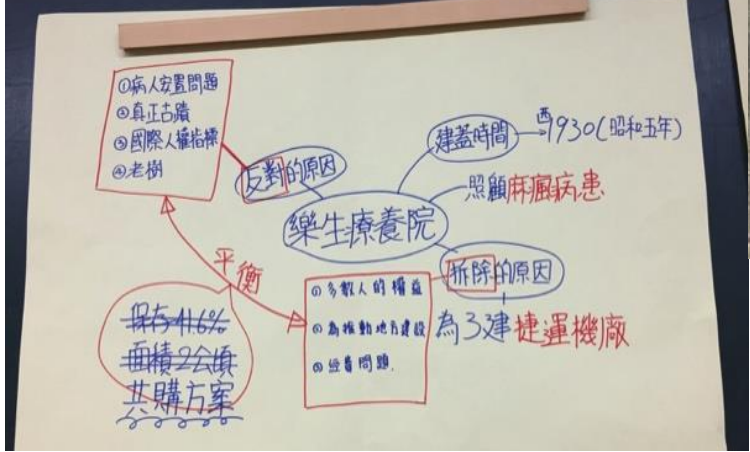 ①病人安置問題
②真正古蹟
③國際人權指標
④老樹
反對的原因
建蓋時間
西1930(昭和五年)
照顧麻瘋病患
樂生療養院
拆除的原因
為了建捷運機廠
①多數人的權益
②為推動地方建設
③經費問題.
平衡
保存41.6%
面積2公頃
共購方案